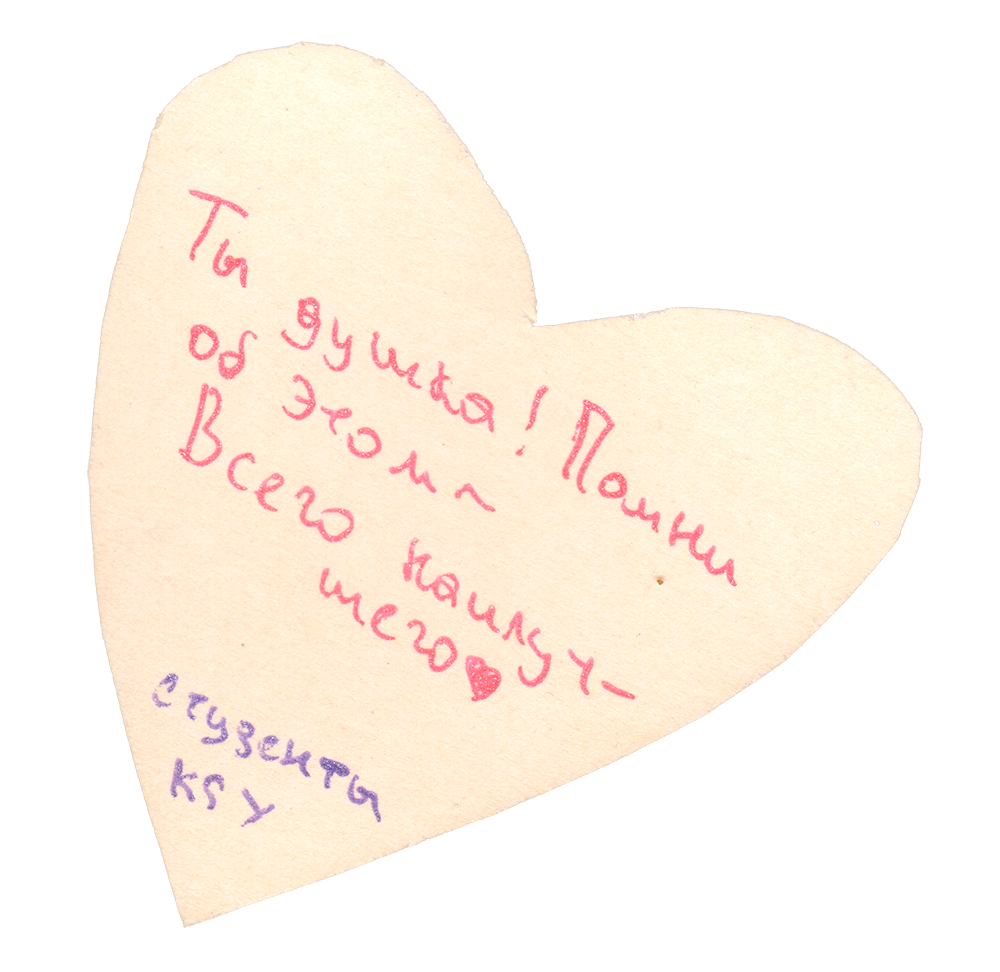 Ты душка! Помни
об этом ~
Всего наилуч-
шего♥
студенты
КГУ